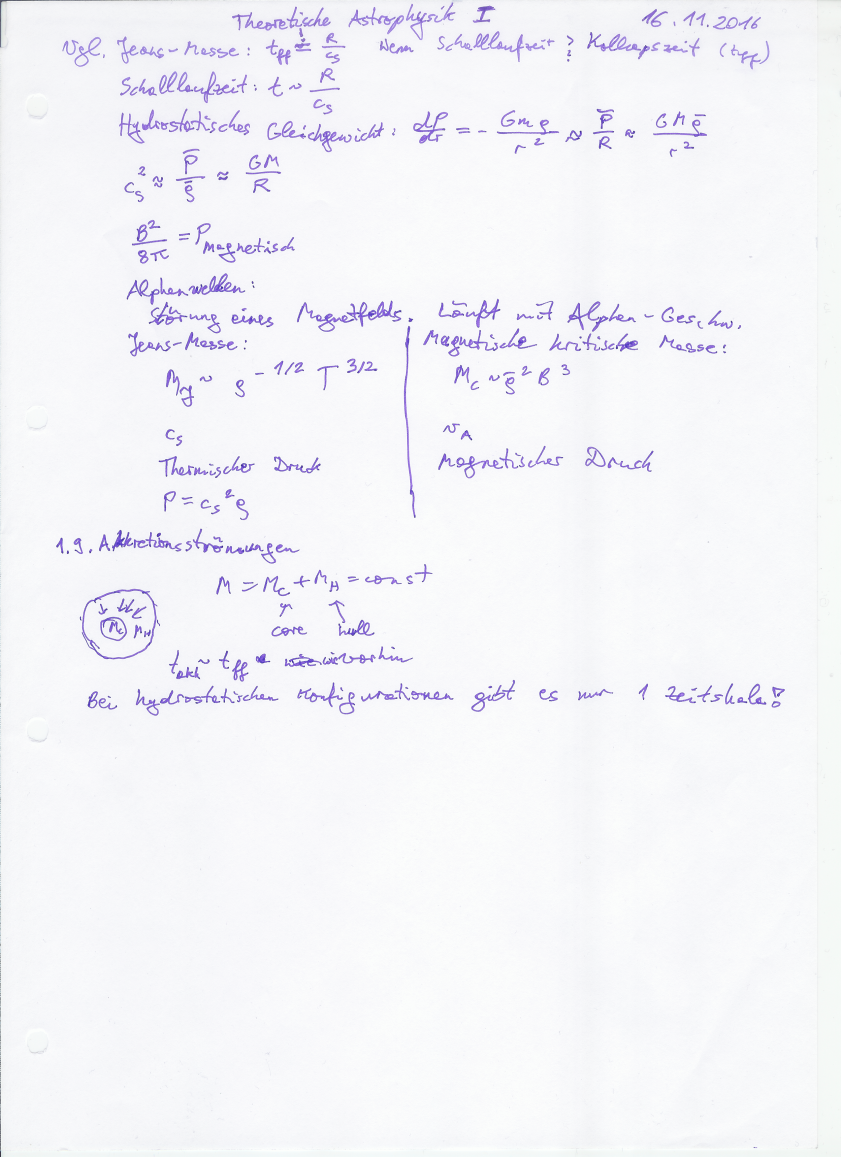 Theoretische Astrophysik I 16.11.2016
Vgl. Jeans-Masse: t_ff ≐ R/c_s Wenn Schalllaufzeit > Kollapszeit (t_ff)
Schalllaufzeit: t ~ R/c_s
Hydrostatisches Gleichgewicht: dP/dr = - Gmρ/r² ≈ P̄/R ≈ GMρ̄/r²
c_s² ≈ P̄/ρ̄ ≈ GM/R
B²/8π = P_magnetisch
Alphenwellen:
Störung eines Magnetfelds. Läuft mit Alphen-Geschw.
Jeans-Masse: Magnetische kritische Masse:
M_J ~ ρ^-1/2 T^3/2 M_c ~ ρ̄² B³
c_s v_A
Thermischer Druck Magnetischer Druck
P = c_s² ρ
1.9. Akkretionsströmungen
M = M_C + M_H = const
core hull
M_C M_H
t_akk ~ t_ff wie vorhin
Bei hydrostatischen Konfigurationen gibt es nur 1 Zeitskala!